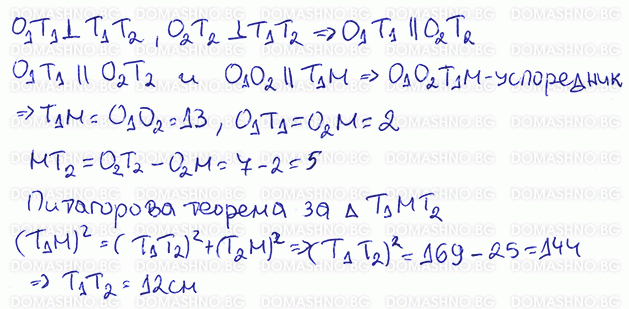 O₁T₁ ⊥ T₁T₂, O₂T₂ ⊥ T₁T₂ ⇒ O₁T₁ ∥ O₂T₂
O₁T₁ ∥ O₂T₂ и O₁O₂ ∥ T₁M ⇒ O₁O₂T₁M - успоредник
⇒ T₁M = O₁O₂ = 13, O₁T₁ = O₂M = 2
MT₂ = O₂T₂ - O₂M = 7 - 2 = 5
Питагорова теорема за △ T₁MT₂
(T₁M)² = (T₁T₂)² + (T₂M)² ⇒ (T₁T₂)² = 169 - 25 = 144
⇒ T₁T₂ = 12см